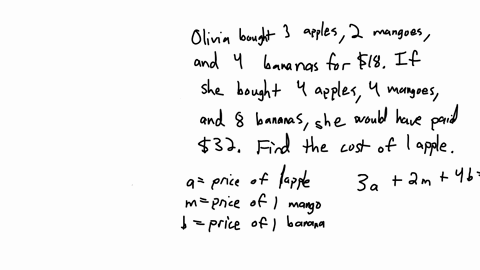 Olivia bought 3 apples, 2 mangoes,
and 4 bananas for $18. If
she bought 4 apples, 4 mangoes,
and 8 bananas, she would have paid
$32. Find the cost of 1 apple.
a = price of 1 apple
m = price of 1 mango
b = price of 1 banana
3a + 2m + 4b =